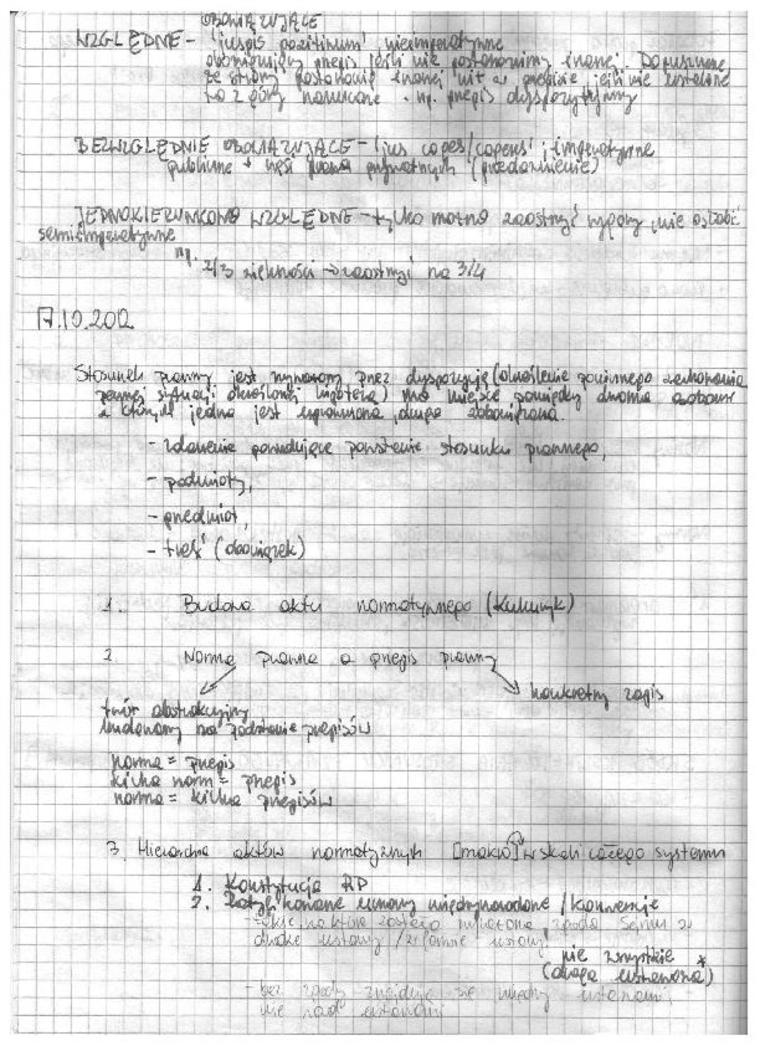 OBOWIĄZUJĄCE
WZGLĘDNE - 'juspis pozitinum' nieimperatywne
obowiązujący przepis jeśli nie postanowimy inaczej. Dopuszczone,
że strony postanowią inaczej niż w przepisie jeśli nie ustalone
to z góry narzucone. np. przepis dyspozytywny
BEZWZGLĘDNIE OBOWIĄZUJĄCE - 'ius coges/cogens', imperatywne
publiczne + część prawa prywatnych (przedawnienie)
JEDNOKIERUNKOWO WZGLĘDNE - tylko można zaostrzyć wymogi, nie osłabić
semiimperatywne
np. 2/3 większości -> zaostrzyć na 3/4
17.10.2012
Stosunek prawny jest wyznaczony przez dyspozycję (określenie powinnego zachowania
w pewnej sytuacji określonej hipotezą) ma miejsce pomiędzy dwoma osobami
z których jedna jest uprawniona, druga zobowiązana.
- zdarzenie powodujące powstanie stosunku prawnego,
- podmioty,
- przedmiot,
- treść (obowiązek)
1. Budowa aktu normatywnego (Kukuryk)
2. Norma prawna a przepis prawny
konkretny zapis
twór abstrakcyjny
budowany na podstawie przepisów
norma = przepis
kilka norm = przepis
norma = kilka przepisów
3. Hierarchia aktów normatywnych [makro] w skali całego systemu
1. Konstytucja RP
2. Ratyfikowane umowy międzynarodowe / konwencje
- takie, na które została wyrażona zgoda Sejmu w
drodze ustawy / w formie ustawy.
nie wszystkie *
(droga ustawowa)
- bez zgody znajduje się między ustawami,
nie nad ustawami